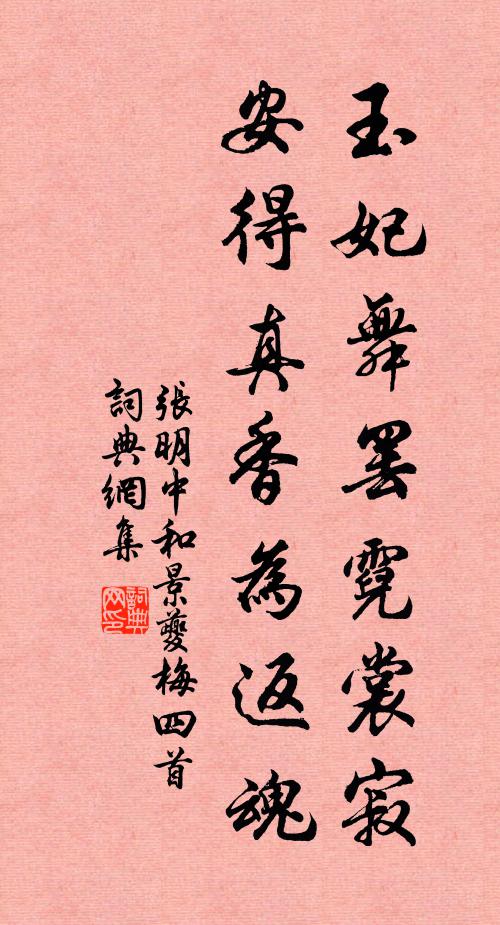 玉妃舞罷霓裳寂
安得真香為返魂
張明中和景夔梅四首
詞典網集
詞典
网印